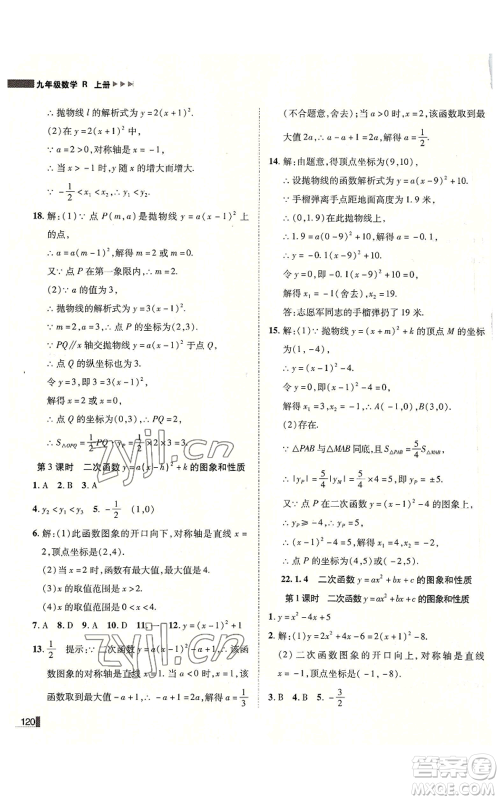 九年级数学 R 上册
∴ 抛物线 l 的解析式为 y=2(x+1)².
(2)在 y=2(x+1)² 中,
∵ a=2>0,对称轴是 x=-1,
∴ 当 x>-1 时,y 随 x 的增大而增大.
∵ -1/2<x₁<x₂,∴ y₁<y₂.
18. 解:(1)∵ 点 P(m,a)是抛物线 y=a(x-1)² 上
的点,
∴ a=a(m-1)²,解得 m=2 或 m=0.
∵ 点 P 在第一象限内,∴ m=2.
(2)∵ a 的值为 3,
∴ 抛物线的解析式为 y=3(x-1)².
∵ m=2,a=3,∴ 点 P 的坐标为(2,3).
∵ PQ∥x 轴交抛物线 y=a(x-1)² 于点 Q,
∴ 点 Q 的纵坐标为 3.
令 y=3,即 3=3(x-1)²,
解得 x=2 或 x=0.
∴ 点 Q 的坐标为(0,3).∴ PQ=2.
∴ S△OPQ=1/2 PQ·yP=1/2×2×3=3.
第 3 课时 二次函数 y=a(x-h)²+k 的图象和性质
1. A 2. B 3. A
4. y₂<y₁<y₃ 5. -1/2 (1,0)
6. 解:(1)此函数图象的开口向下,对称轴是直线 x=
2,顶点坐标为(2,4).
(2)当 x=2 时,函数有最大值,最大值是 4.
(3)x 的取值范围是 x<2.
(4)x 的取值范围是 0<x<4.
7. A 8. A 9. D 10. D 11. 一 12. y=-2(x-1)²+1
13. 1/2 提示:∵ 二次函数 y=-(x-a)²+a+1,∴ 该
函数图象的对称轴为直线 x=a,
函数取到最大值-a+1,∴ -a+1=
(不合题意,舍去);当
大值 2a,∴ 2a=1,解得 a=1/2.
14. 解:由题意,得顶点坐标为(9,10),
∴ 设抛物线的函数解析式为 y=a(x-9)²+10.
∵ 手榴弹离手点距地面高度为 1.9 米,
∴ (0,1.9)在抛物线上.
∴ 1.9=a(0-9)²+10,解得 a=-0.1.
∴ y=-0.1(x-9)²+10.
令 y=0,即 0=-0.1(x-9)²+10,
解得 x₁=-1(舍去),x₂=19.
答:志愿军同志的手榴弹扔了 19 米.
15. 解:(1)∵ 抛物线 y=(x+m)²+k 的顶点 M 的坐标
为(1,-4),∴ y=(x-1)²-4.
令 y=0,即(x-1)²-4=0,
解得 x₁=3,x₂=-1.∴ A(-1,0),B(3,0).
(2)存在.
∵ △PAB 与△MAB 同底,且 S△PAB=5/4 S△MAB,
∴ |yP|=5/4|yM|=5/4×4=5,即 yP=±5.
又∵ 点 P 在二次函数 y=(x-1)²-4 的图象上,
∴ yP≥-4.∴ yP=5.
令 y=5,即(x-1)²-4=5,解得 x=4 或 x=-2.
∴ 点 P 的坐标为(4,5)或(-2,5).
22.1.4 二次函数 y=ax²+bx+c 的图象和性质
第 1 课时 二次函数 y=ax²+bx+c 的图象和性质
1. y=x²-4x+5
2. 解:(1)y=x²-2x-7=(x-1)²-8.
(2)二次函数图象的开口向上,对称轴是直线 x=
1,顶点坐标为(1,-8).
3. B 4. B 5. -3/2
120
zyjl.cn